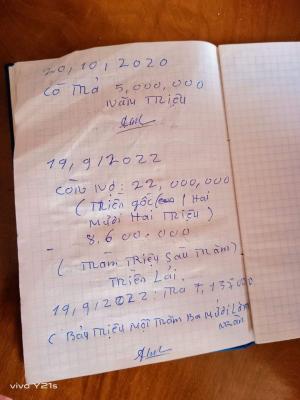 20, 10, 2020
CÔ Trả 5,000,000
Năm Triệu
19, 9/2022
CÒN NỢ: 22,000,000
(Tiền gốc / Hai
Mươi Hai Triệu)
- 8,600.000
(Tám Triệu Sáu Trăm)
Tiền Lải.
19,9/2022: Trả 7,135000
(Bảy Triệu Một Trăm Ba Mươi Lăm
vivo Y21s